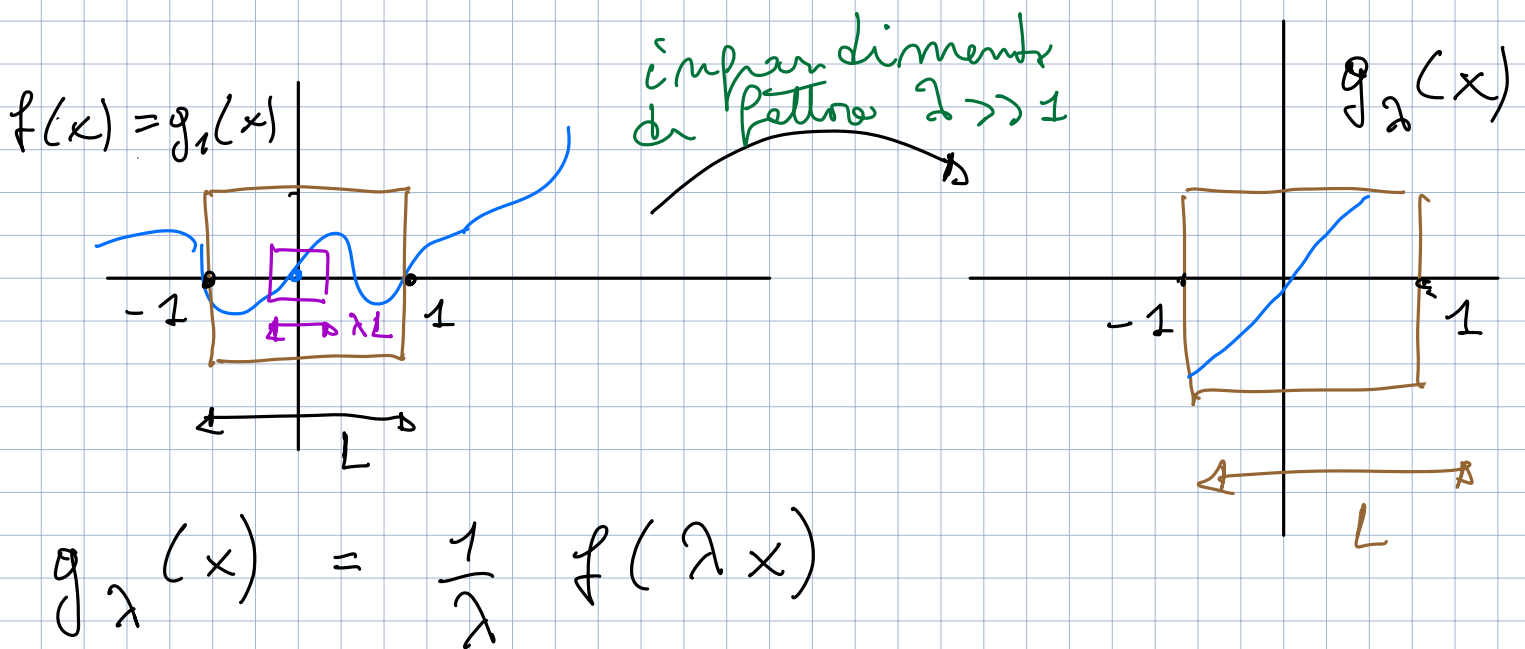 f(x) = g₁(x)
ingrandimento
di fattore λ >> 1
g_λ(x)
-1
λL
1
L
-1
1
L
g_λ(x) = 1/λ f(λx)